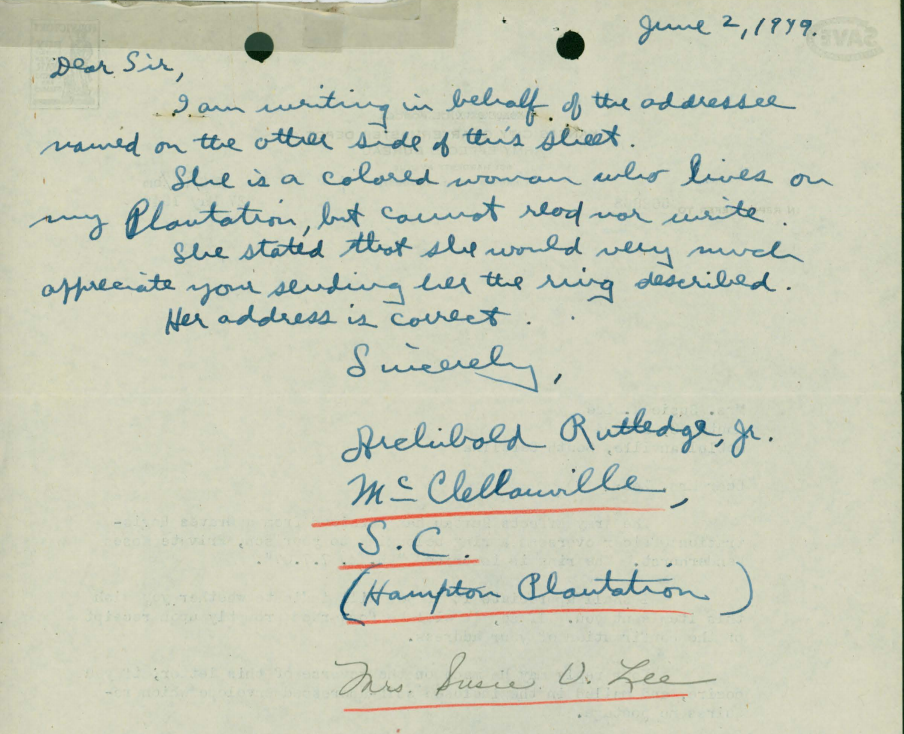 June 2, 1949.
Dear Sir,
I am writing in behalf of the addressee
named on the other side of this sheet.
She is a colored woman who lives on
my Plantation, but cannot read nor write.
She stated that she would very much
appreciate your sending her the ring described.
Her address is correct.
Sincerely,
Archibald Rutledge, Jr.
McClellanville,
S.C.
(Hampton Plantation)
Mrs. Susie V. Lee